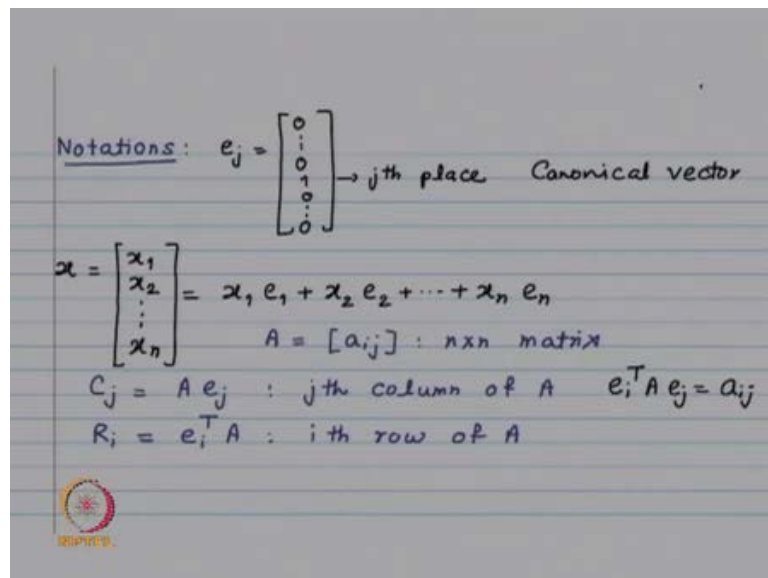 Notations : e_j = [0 ⋮ 0 1 0 ⋮ 0] → jth place Canonical vector
x = [x_1 x_2 ⋮ x_n] = x_1 e_1 + x_2 e_2 + ⋯ + x_n e_n
A = [a_ij] : n×n matrix
C_j = A e_j : jth column of A e_i^T A e_j = a_ij
R_i = e_i^T A : ith row of A
NPTEL